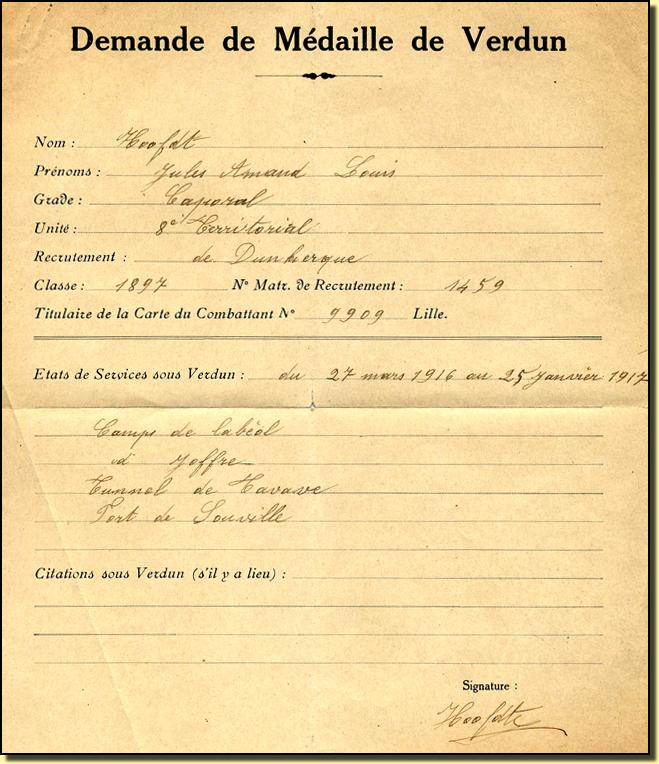 Demande de Médaille de Verdun
Nom : Hoofdt
Prénoms : Jules Amand Louis
Grade : Caporal
Unité : 8e Territorial
Recrutement : de Dunkerque
Classe : 1897 No Matr. de Recrutement : 1459
Titulaire de la Carte du Combattant No 9909 Lille.
Etats de Services sous Verdun : du 27 mars 1916 au 25 Janvier 1917
Camps de labéol
d Joffre
Tunnel de Tavave
Fort de Souville
Citations sous Verdun (s'il y a lieu) :
Signature :
Hoofdt